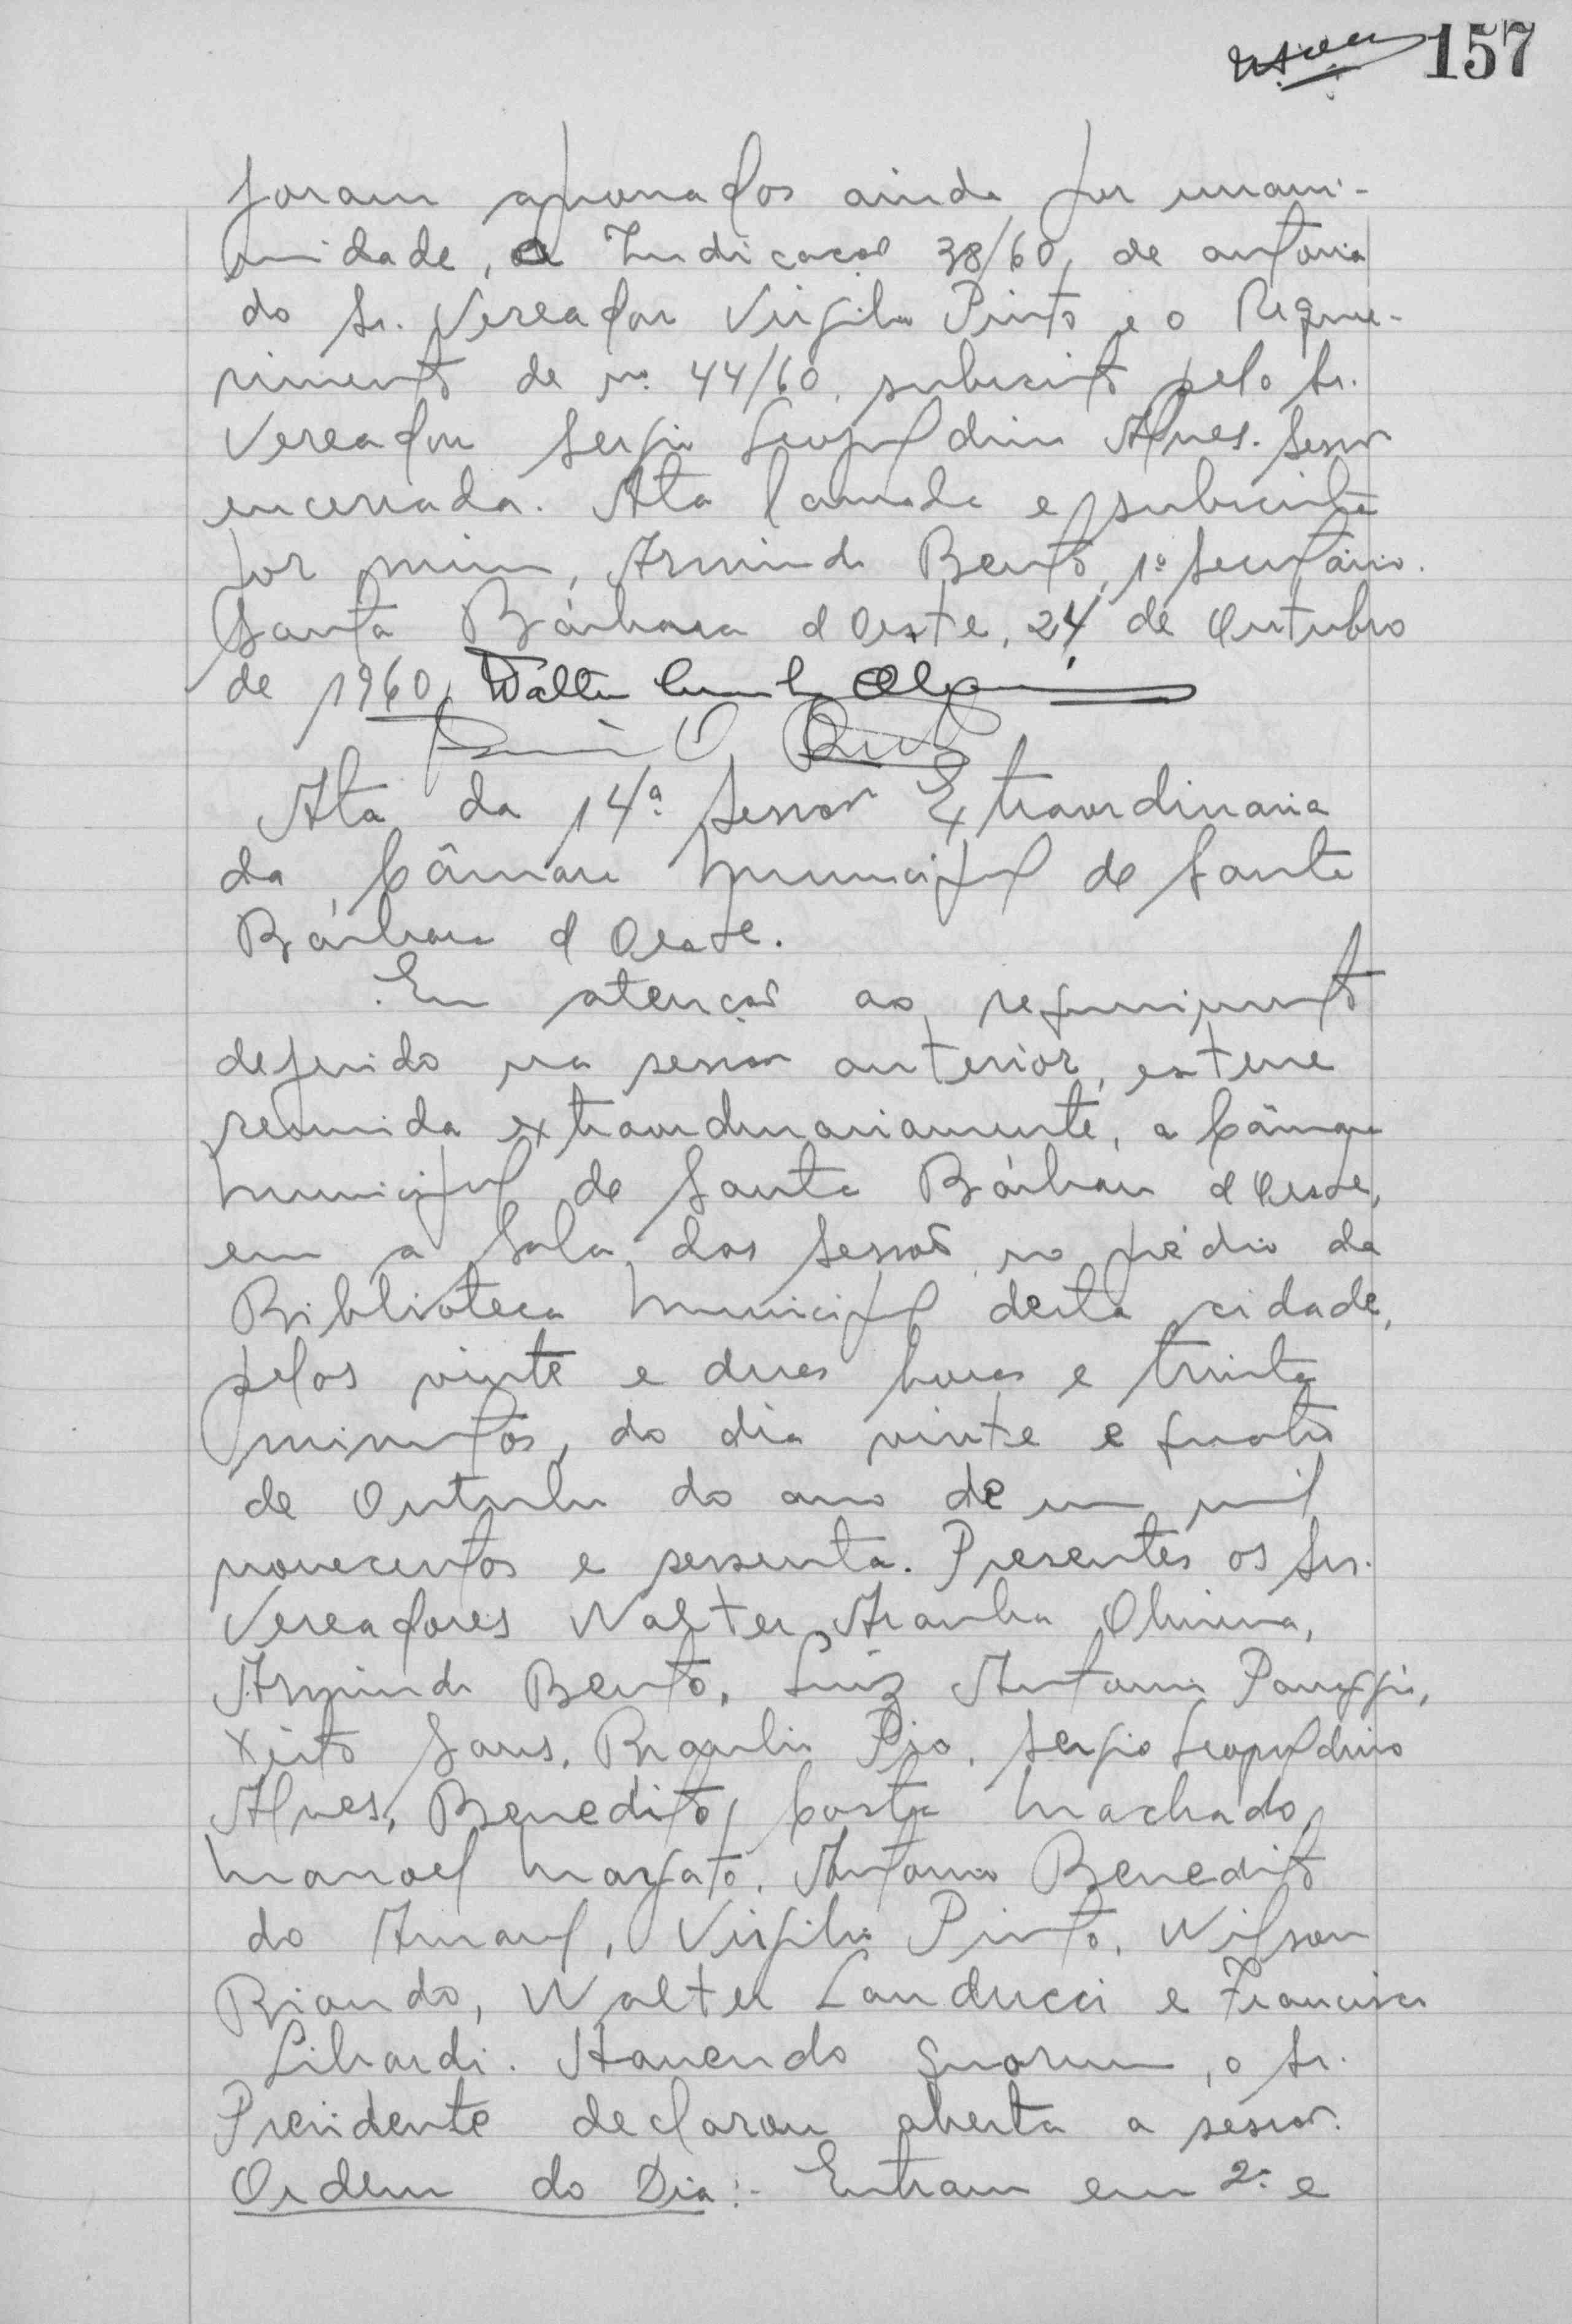 157
foram aprovados ainda por unani-
midade, a Indicação 38/60, de autoria
do Sr. Vereador Virgilio Pinto e o Reque-
rimento de nº 44/60, subscrito pelo Sr.
Vereador Sergio Leopoldino Alves. Sessão
encerrada. Ata lavrada e subscrita
por mim, Armindo Bento, 1º Secretário.
Santa Bárbara d Oeste, 24 de Outubro
de 1960, Walter
Ata da 14ª Sessão Extraordinaria
da Câmara Municipal de Santa
Bárbara d Oeste.
Em atenção ao requerimento
deferido na sessão anterior, esteve
reunida extraordinariamente, a Câmara
Municipal de Santa Bárbara d Oeste,
em a Sala das Sessões no prédio da
Biblioteca Municipal desta cidade,
pelas vinte e duas horas e trinta
minutos, do dia vinte e quatro
de Outubro do ano de um mil
novecentos e sessenta. Presentes os Srs.
Vereadores Walter Aranha Oliveira,
Armindo Bento, Luiz Antonio Panaggio,
Xisto Sans, Braulio Pio, Sergio Leopoldino
Alves, Benedito Costa Machado,
Manoel Margato, Antonio Benedito
do Amaral, Virgilio Pinto, Wilson
Biando, Walter Landucci e Francisco
Libardi. Havendo Quorum, o Sr.
Presidente declarou aberta a sessão.
Ordem do Dia:- Entram em 2ª e